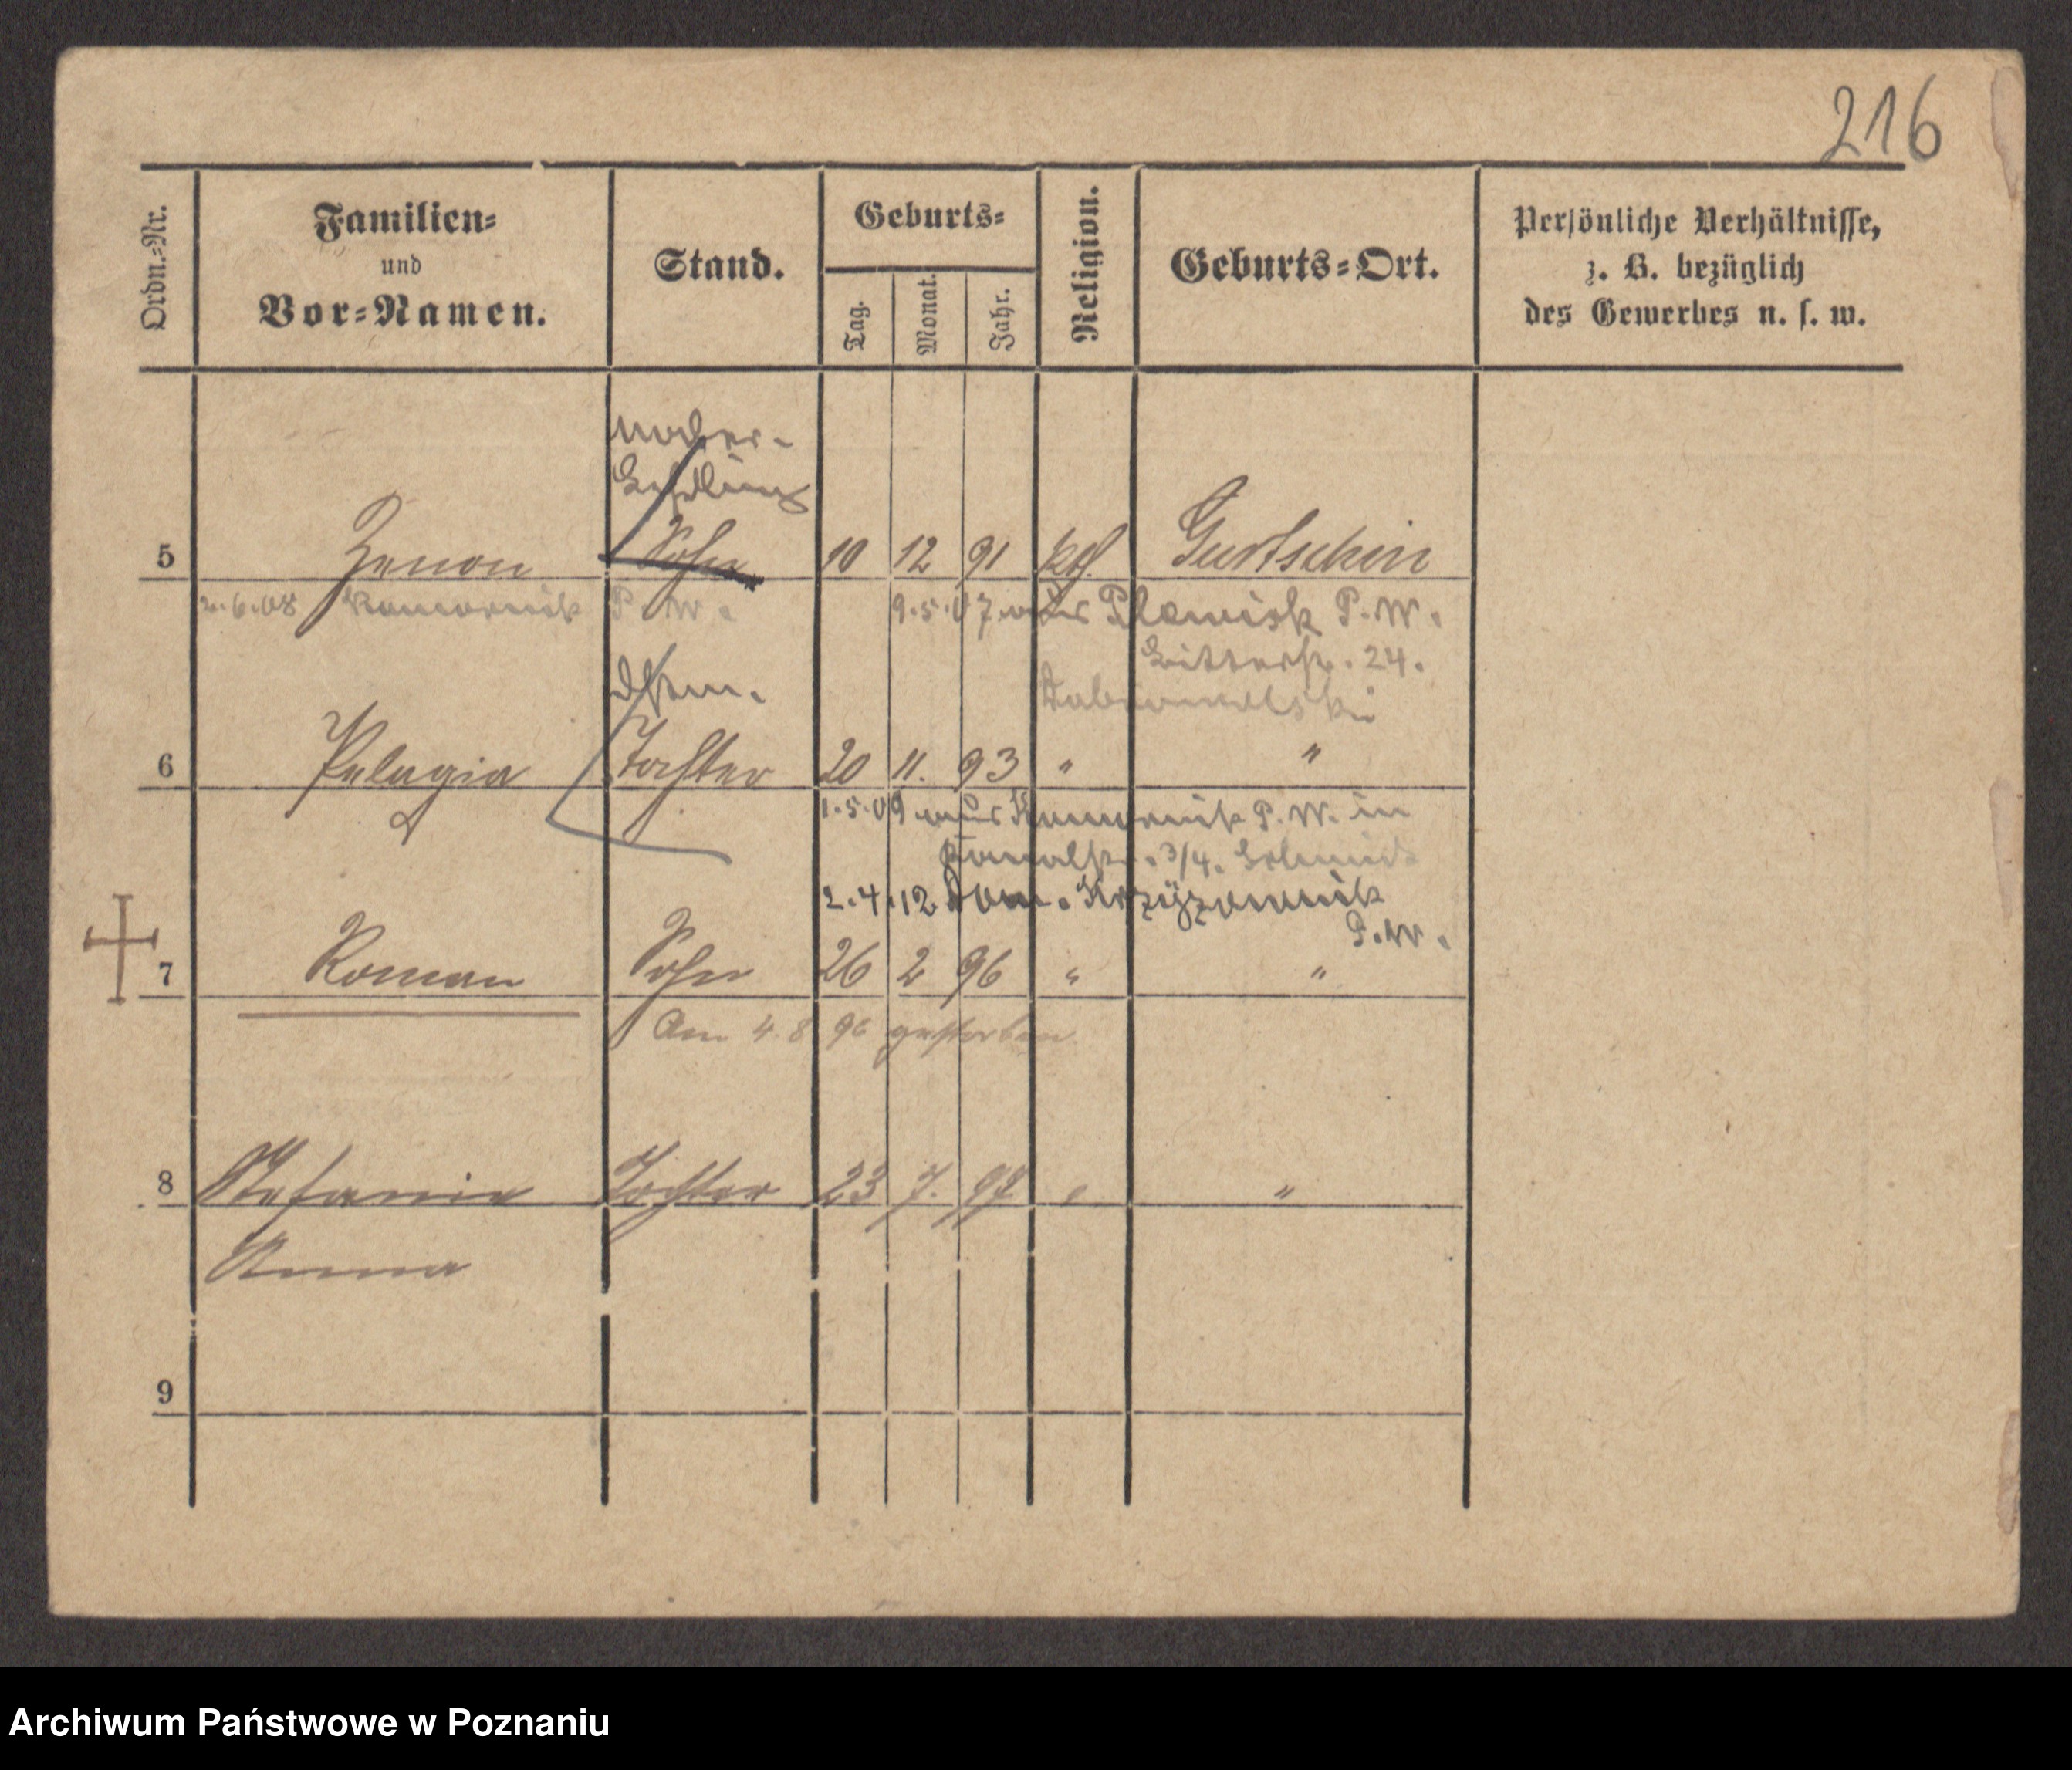 216
Ordn.=Nr.
Familien=
und
Vor=Namen.
Stand.
Geburts=
Tag.
Monat.
Jahr.
Religion.
Geburts=Ort.
Persönliche Verhältnisse,
z. B. bezüglich
des Gewerbes u. s. w.
5 Zenon Sohn 10 12 91 kth. Gurtschin
2.6.08 Komornik P. W. 9.5.07 aus Plewisk P. W.
Ritterstr. 24.
Dstm.
6 Pelagia Tochter 20 11. 93 " "
1.5.09 aus Komornik P. W. in
Kanalstr. 3/4.
2.4.12 Dom. Krzyzownik
P. W.
7 Roman Sohn 26 2 96 " "
Am 4. 8 96 gestorben
8 Stefania Tochter 23 7. 97 " "
Anna
9
Archiwum Państwowe w Poznaniu